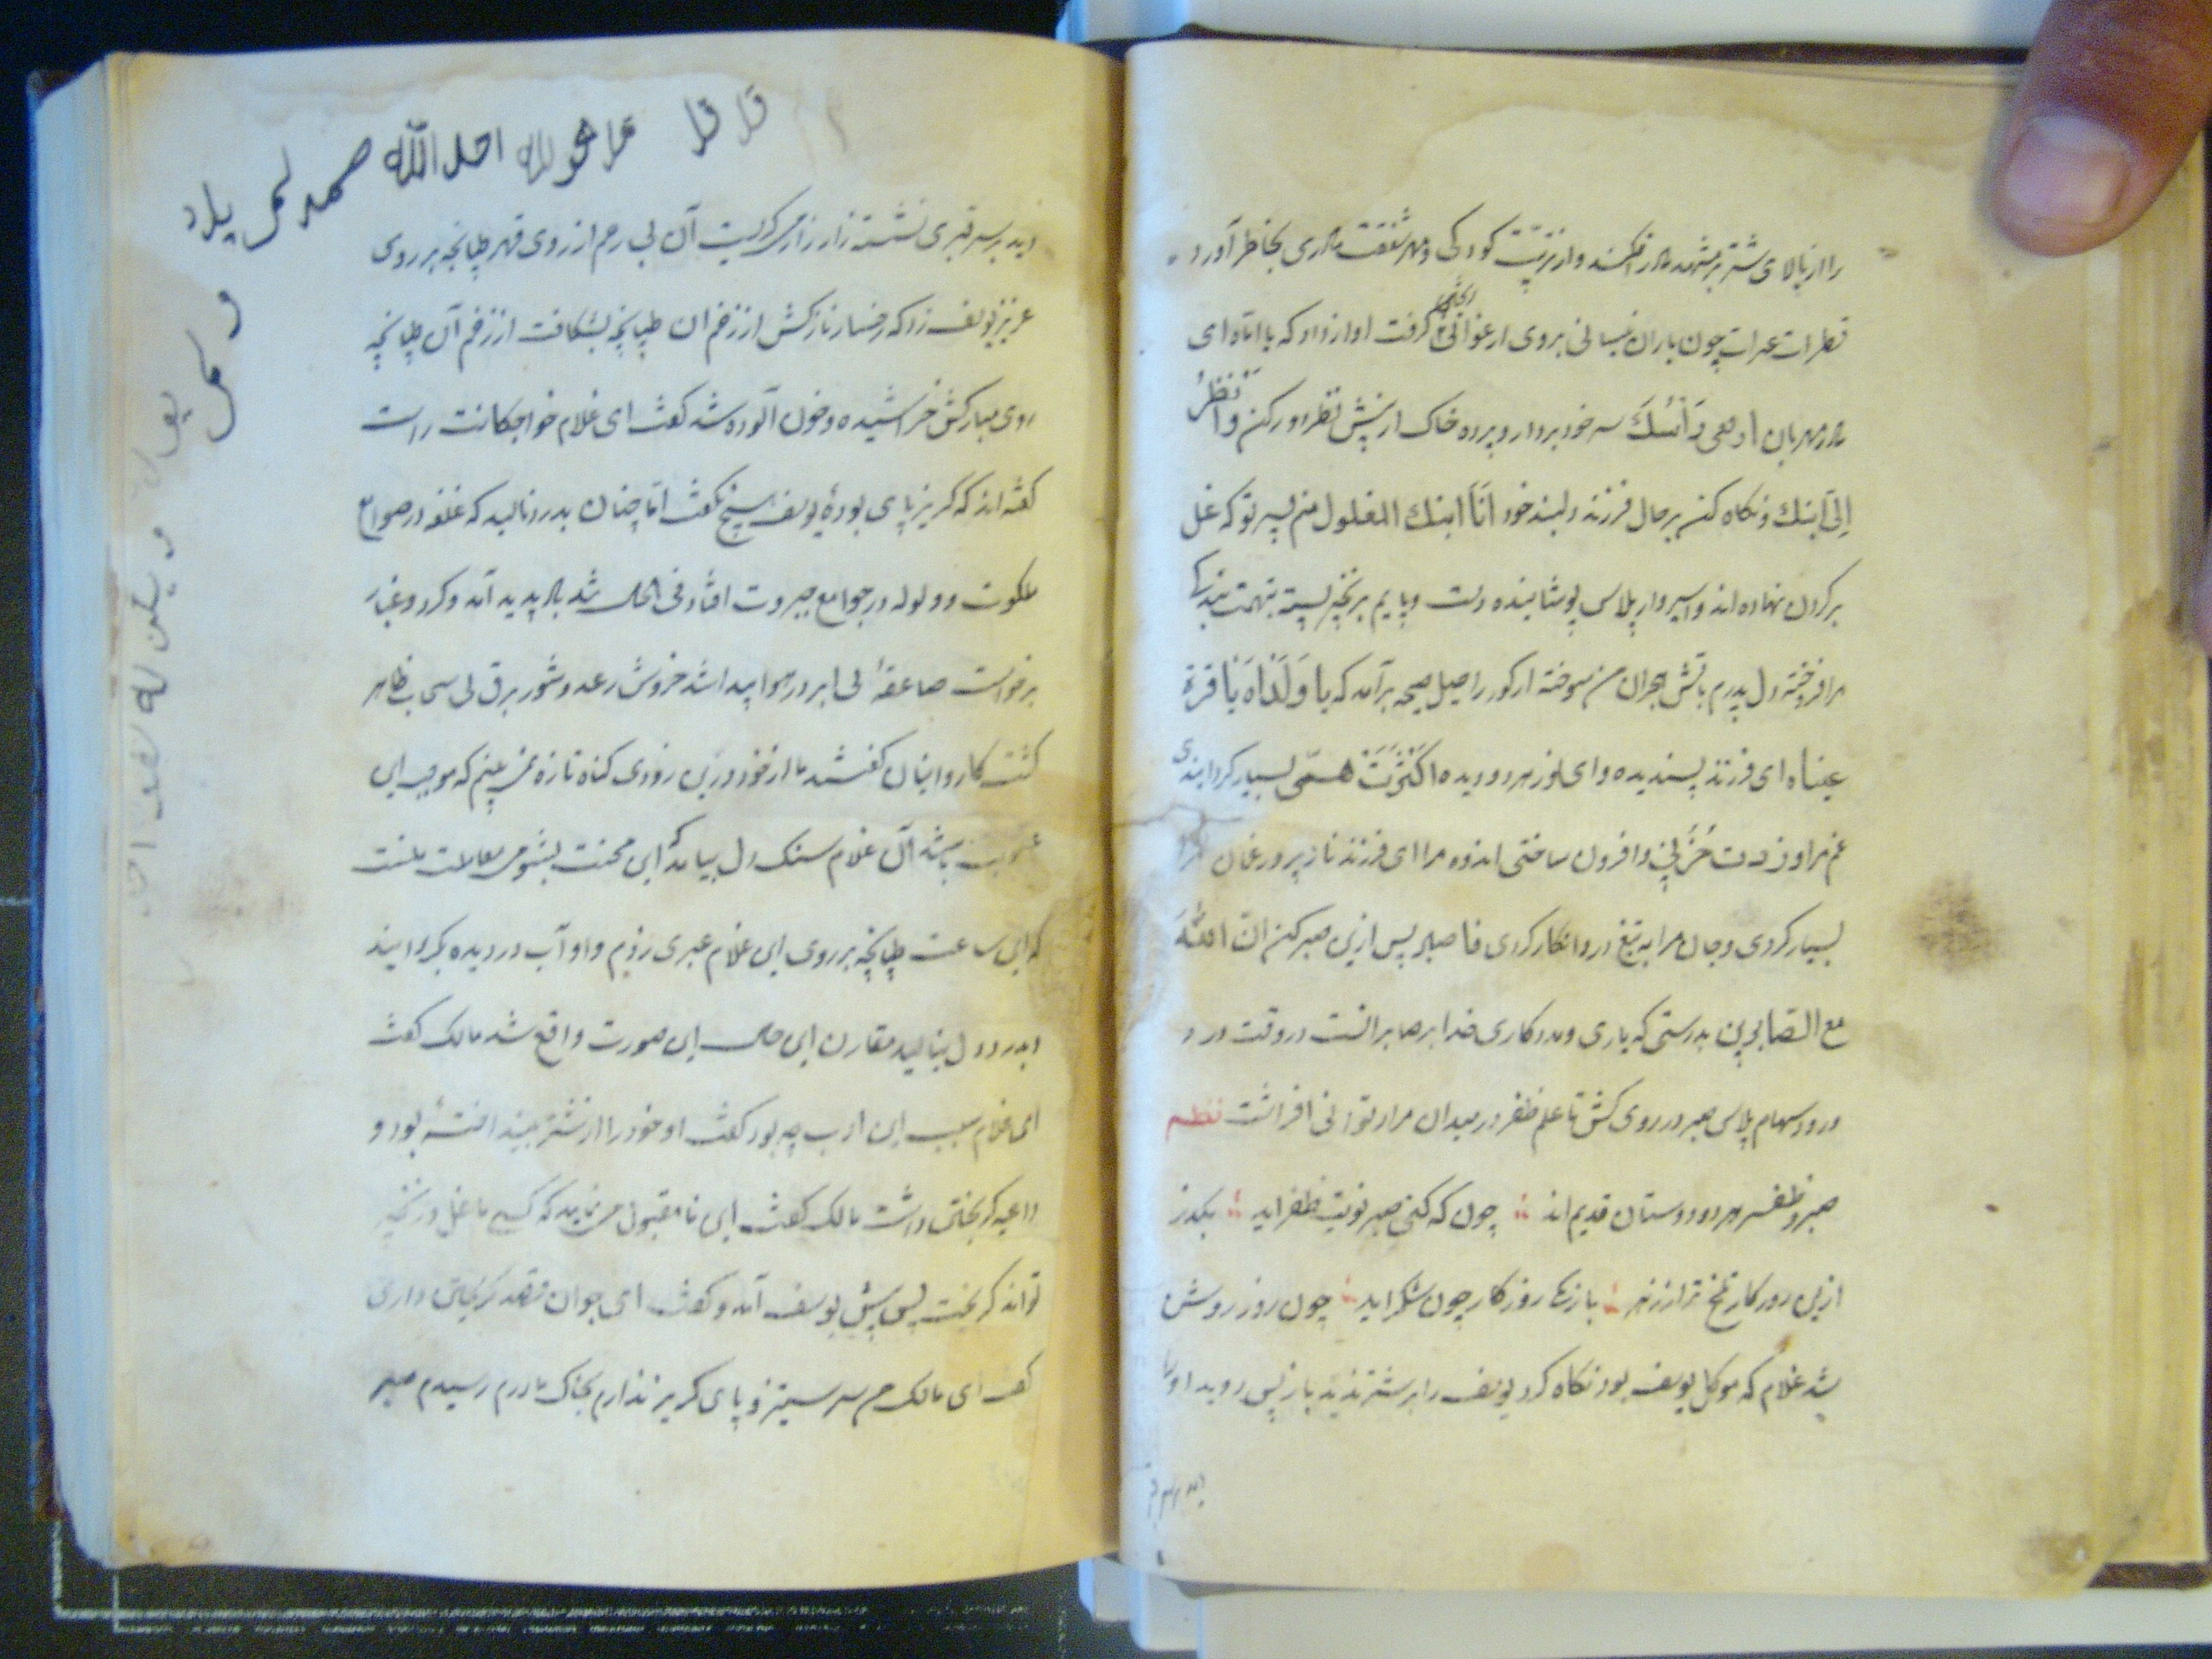 را از بالای شتر بر مشهد مادر افکند و از تربیت کودکی و مهر شفقت مادری بخاطر آورد
قطرات عبرات چون باران نیسانی بروی ارغوانی ریختن گرفت اواز داد که یا اماه ای
مادر مهربان ارفعی رَاْسُكَ سر خود بردار و پرده خاک از پیش نظر دور کن وانْظُر
اِلیَ اَبنك و نکاه کن بر حال فرزند دلبند خود اَنَا ابنك المغلول منم پسر تو که غل
بر کردن نهاده اند و اسیروار پلاس پوشانیده دست و پایم بزنجیر بسته بتهمت بندکی
مرا فروخته دل پدرم باتش هجران من سوخته از کور راحیل صیحه برآمد که یا وَلَدَاه یَا قرة
عیناه ای فرزند پسندیده و ای نور هر دو دیده اَکْثَرْتَ همّی بسیار کردانیدی
غم مرا و زدت حُزْنِی و افزون ساختی اندوه مرا ای فرزند ناز پرور
بسیار کردی و جان مرا به تیغ درد افکار کردی فاصبر پس ازین صبر کن انّ اللّهَ
مع الصّابرین بدرستی که یاری و مددکاری خدا بر صابرانست در وقت ورود
ورود سهام پلاس صبر در روی کش تا علم ظفر در میدان مراد توانی افراشت نظم
صبر و ظفر هر دو دوستان قدیم اند چون که کنی صبر نوبت ظفر اید بکذر
ازین روزکار تلخ تر از زهر باز یکی روزکار چون شکر اید چون روز روشن
شد غلام که موکل یوسف بود نکاه کرد یوسف را بر شتر ندید باز پس دوید او را
دید بر سر قبری
قل قل قل هو لله احد الله صمد لم یلد
دید بر سر قبری نشسته زار زار می کریست آن بی رحم از روی قهر طپانچه بر روی
عزیز یوسف زد که رخسار نازکش از زخم ان طپانچه بشکافت از زخم آن طپانچه
روی مبارکش خراشیده و خون آلوده شد کفت ای غلام خواجکانت راست
کفته اند که کریز پای بودهٔ یوسف هیچ نکفت اما چنان بدرد نالید که غلغله در صوامع
ملکوت و ولوله در جوامع جبروت افتاد فی الحال شد باد پدید آمد و کرد و غبار
برخواست صاعقهٔ بی ابر در هوا پیدا شد خروش رعد و شور برق بی سحاب ظاهر
کشت کاروانیان کفتند ما از خود درین زودی کناه تازه نمی بینیم که موجب این
عقوبت باشد آن غلام سنک دل بیامد این محنت بشومی معاملت منست
که این ساعت طپانچه بر روی این غلام عبری زدم و او آب در دیده بکردانید
و بدرد دل بنالید مقارن این حال این صورت واقع شد مالک کفت
ای غلام سبب این ادب چه بود کفت او خود را از شتر بینداخته بود و
داعیه کریختن داشت مالک کفت این نامقبول می نماید که کسی با غل و زنجیر
تواند کریخت پس پیش یوسف آمد و کفت ای جوان قصد کریختن داری
کفت ای مالک من سر ستیز و پای کریز ندارم بخاک مادرم رسیدم صبر
و لم
یولد
و یکن له کفوا احد